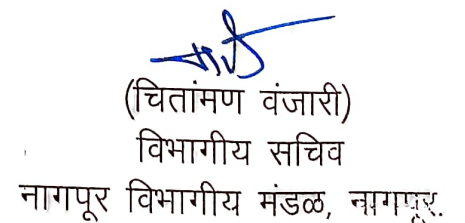 (चितांमण वंजारी)
विभागीय सचिव
नागपूर विभागीय मंडळ, नागपूर.